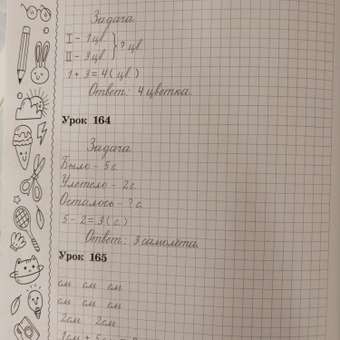 Задача.
I - 1 цв. } ? цв.
II - 3 цв.
1 + 3 = 4 ( цв. )
Ответ: 4 цветка.
Урок 164
Задача.
Было - 5 с.
Улетело - 2 с.
Осталось - ? с.
5 - 2 = 3 ( с. )
Ответ: 3 самолёта.
Урок 165
см см см
см см см
2см 2см